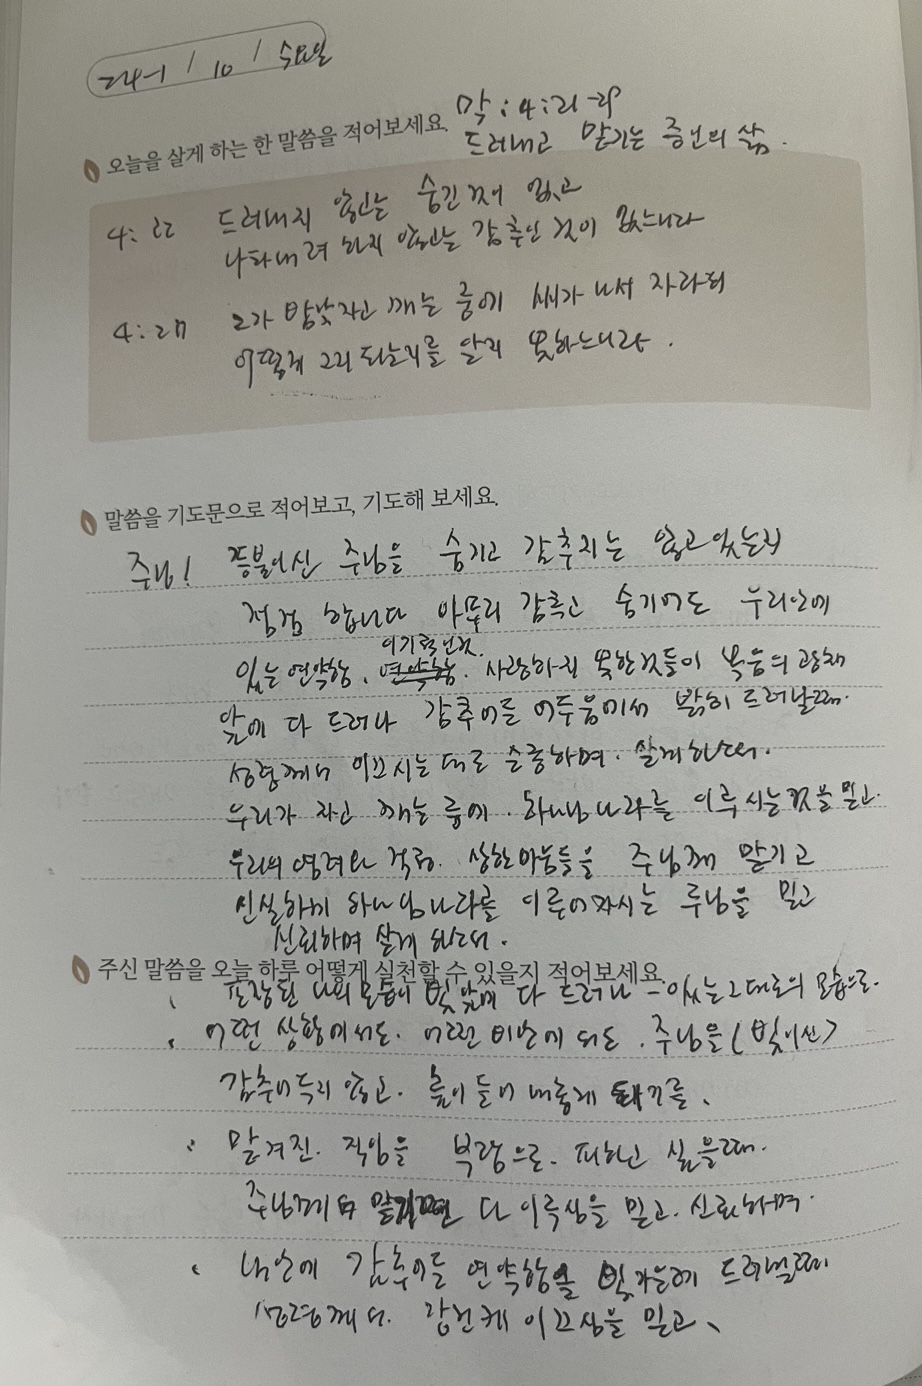 24-1 / 10 / 수요일
막 : 4 : 21-29
오늘을 살게 하는 한 말씀을 적어보세요.
드러내고 맡기는 증인의 삶.
4 : 22 드러내지 않고는 숨긴 것이 없고
나타내려 하지 않고는 감추인 것이 없느니라
4 : 27 그가 밤낮 자고 깨는 중에 씨가 나서 자라되
어떻게 그리 되는지를 알지 못하느니라.
말씀을 기도문으로 적어보고, 기도해 보세요.
주님! 등불이신 주님을 숨기고 감추지는 않고 있는지
점검 합니다 아무리 감추고 숨기어도 우리안에
이기적인것.
있는 연약함, 연약함. 사랑하지 못한것들이 복음의 광채
앞에 다 드러나 감추어둔 어두움에서 밝히 드러날때.
성령께서 이끄시는 대로 순종하며. 살게하소서.
우리가 자고 깨는 중에. 하나님 나라를 이루시는것을 믿고.
우리의 염려와 걱정. 상한마음들을 주님께 맡기고
신실하게 하나님나라를 이루어가시는 주님을 믿고
신뢰하며 살게 하소서.
주신 말씀을 오늘 하루 어떻게 실천할 수 있을지 적어보세요.
나의 모습이 빛앞에 다 드러나 - 있는그대로의 모습으로.
어떤 상황에서도. 어떤 비난에 되도. 주님을 (빛이신)
감추어두지 않고. 높이 들어 내놓게 되기를.
맡겨진. 직임을 부담으로. 피하고 싶을때.
주님께 맡길때면 다 이루심을 믿고. 신뢰하며.
내안에 감추어둔 연약함을 빛가운데 드러낼때
성령께서. 강건케 이끄심을 믿고.